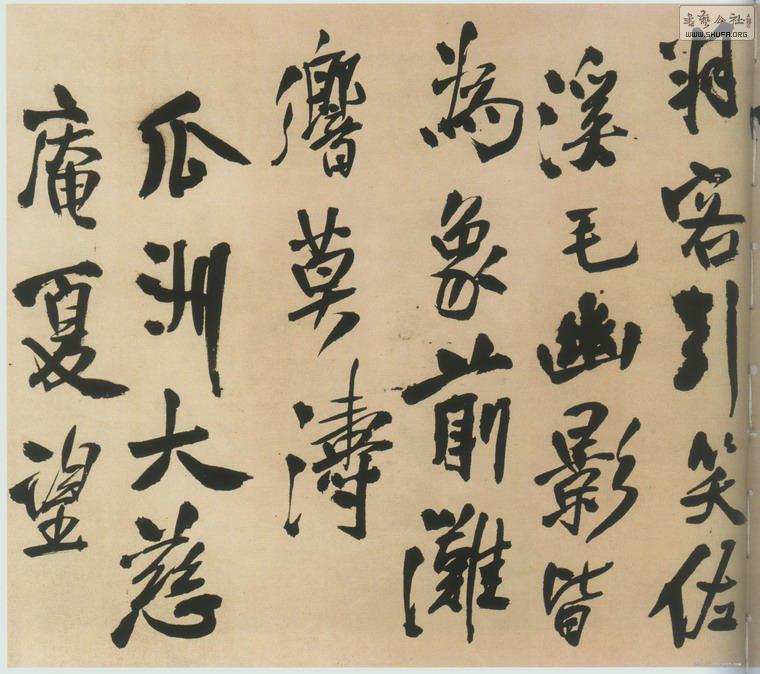 客引笑佐
溪毛幽影皆
為象前灘
響莫濤
瓜洲大慈
庵夏望
書藝公社
WWW.SHUFA.ORG